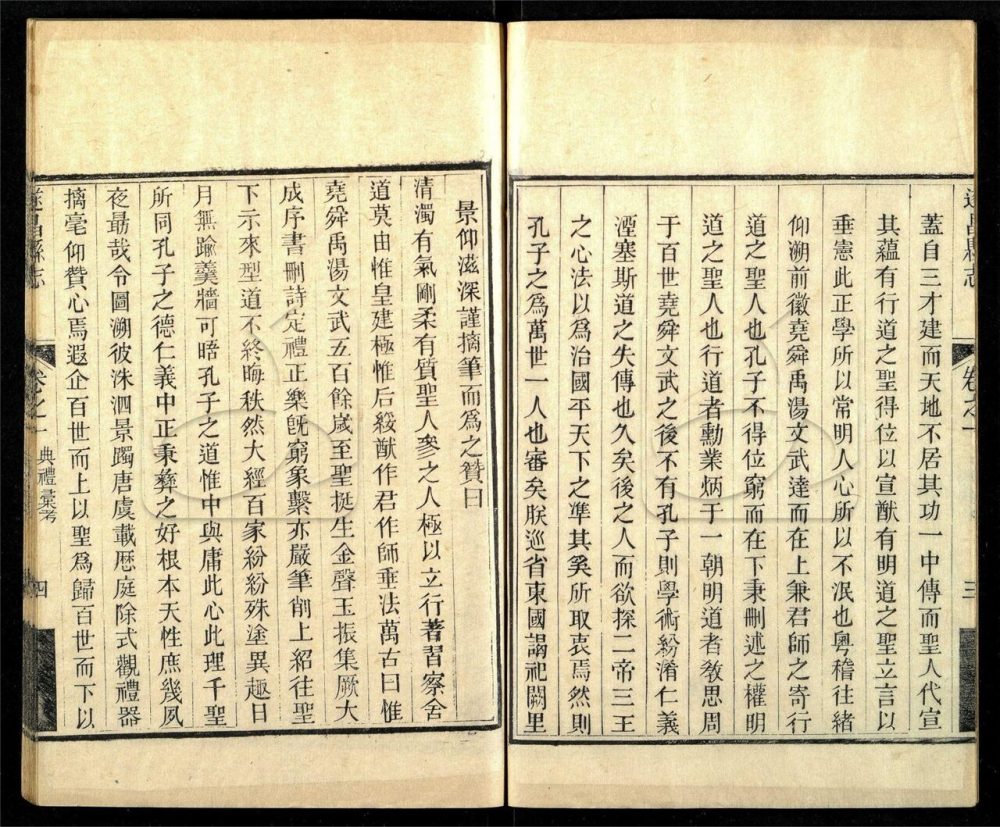 遂昌縣志
卷之一
三
蓋自三才建而天地不居其功一中傳而聖人代宣
其蘊有行道之聖得位以宣猷有明道之聖立言以
垂憲此正學所以常明人心所以不泯也粵稽往緒
仰溯前徽堯舜禹湯文武達而在上兼君師之寄行
道之聖人也孔子不得位窮而在下秉刪述之權明
道之聖人也行道者勳業炳于一朝明道者敎思周
于百世堯舜文武之後不有孔子則學術紛淆仁義
湮塞斯道之失傳也久矣後之人而欲探二帝三王
之心法以爲治國平天下之準其奚所取衷焉然則
孔子之爲萬世一人也審矣朕巡省東國謁祀闕里
景仰滋深謹摛筆而爲之贊曰
淸濁有氣剛柔有質聖人參之人極以立行著習察舍
道莫由惟皇建極惟后綏猷作君作師垂法萬古曰惟
堯舜禹湯文武五百餘歲至聖挺生金聲玉振集厥大
成序書刪詩定禮正樂旣窮象繫亦嚴筆削上紹往聖
下示來型道不終晦秩然大經百家紛紛殊塗異趣日
月無踰羹牆可晤孔子之道惟中與庸此心此理千聖
所同孔子之德仁義中正秉彝之好根本天性庶幾夙
夜勗哉令圖溯彼洙泗景躅唐虞載歷庭除式觀禮器
摛毫仰贊心焉遐企百世而上以聖爲歸百世而下以
遂昌縣志
卷之一
典禮彙考
四